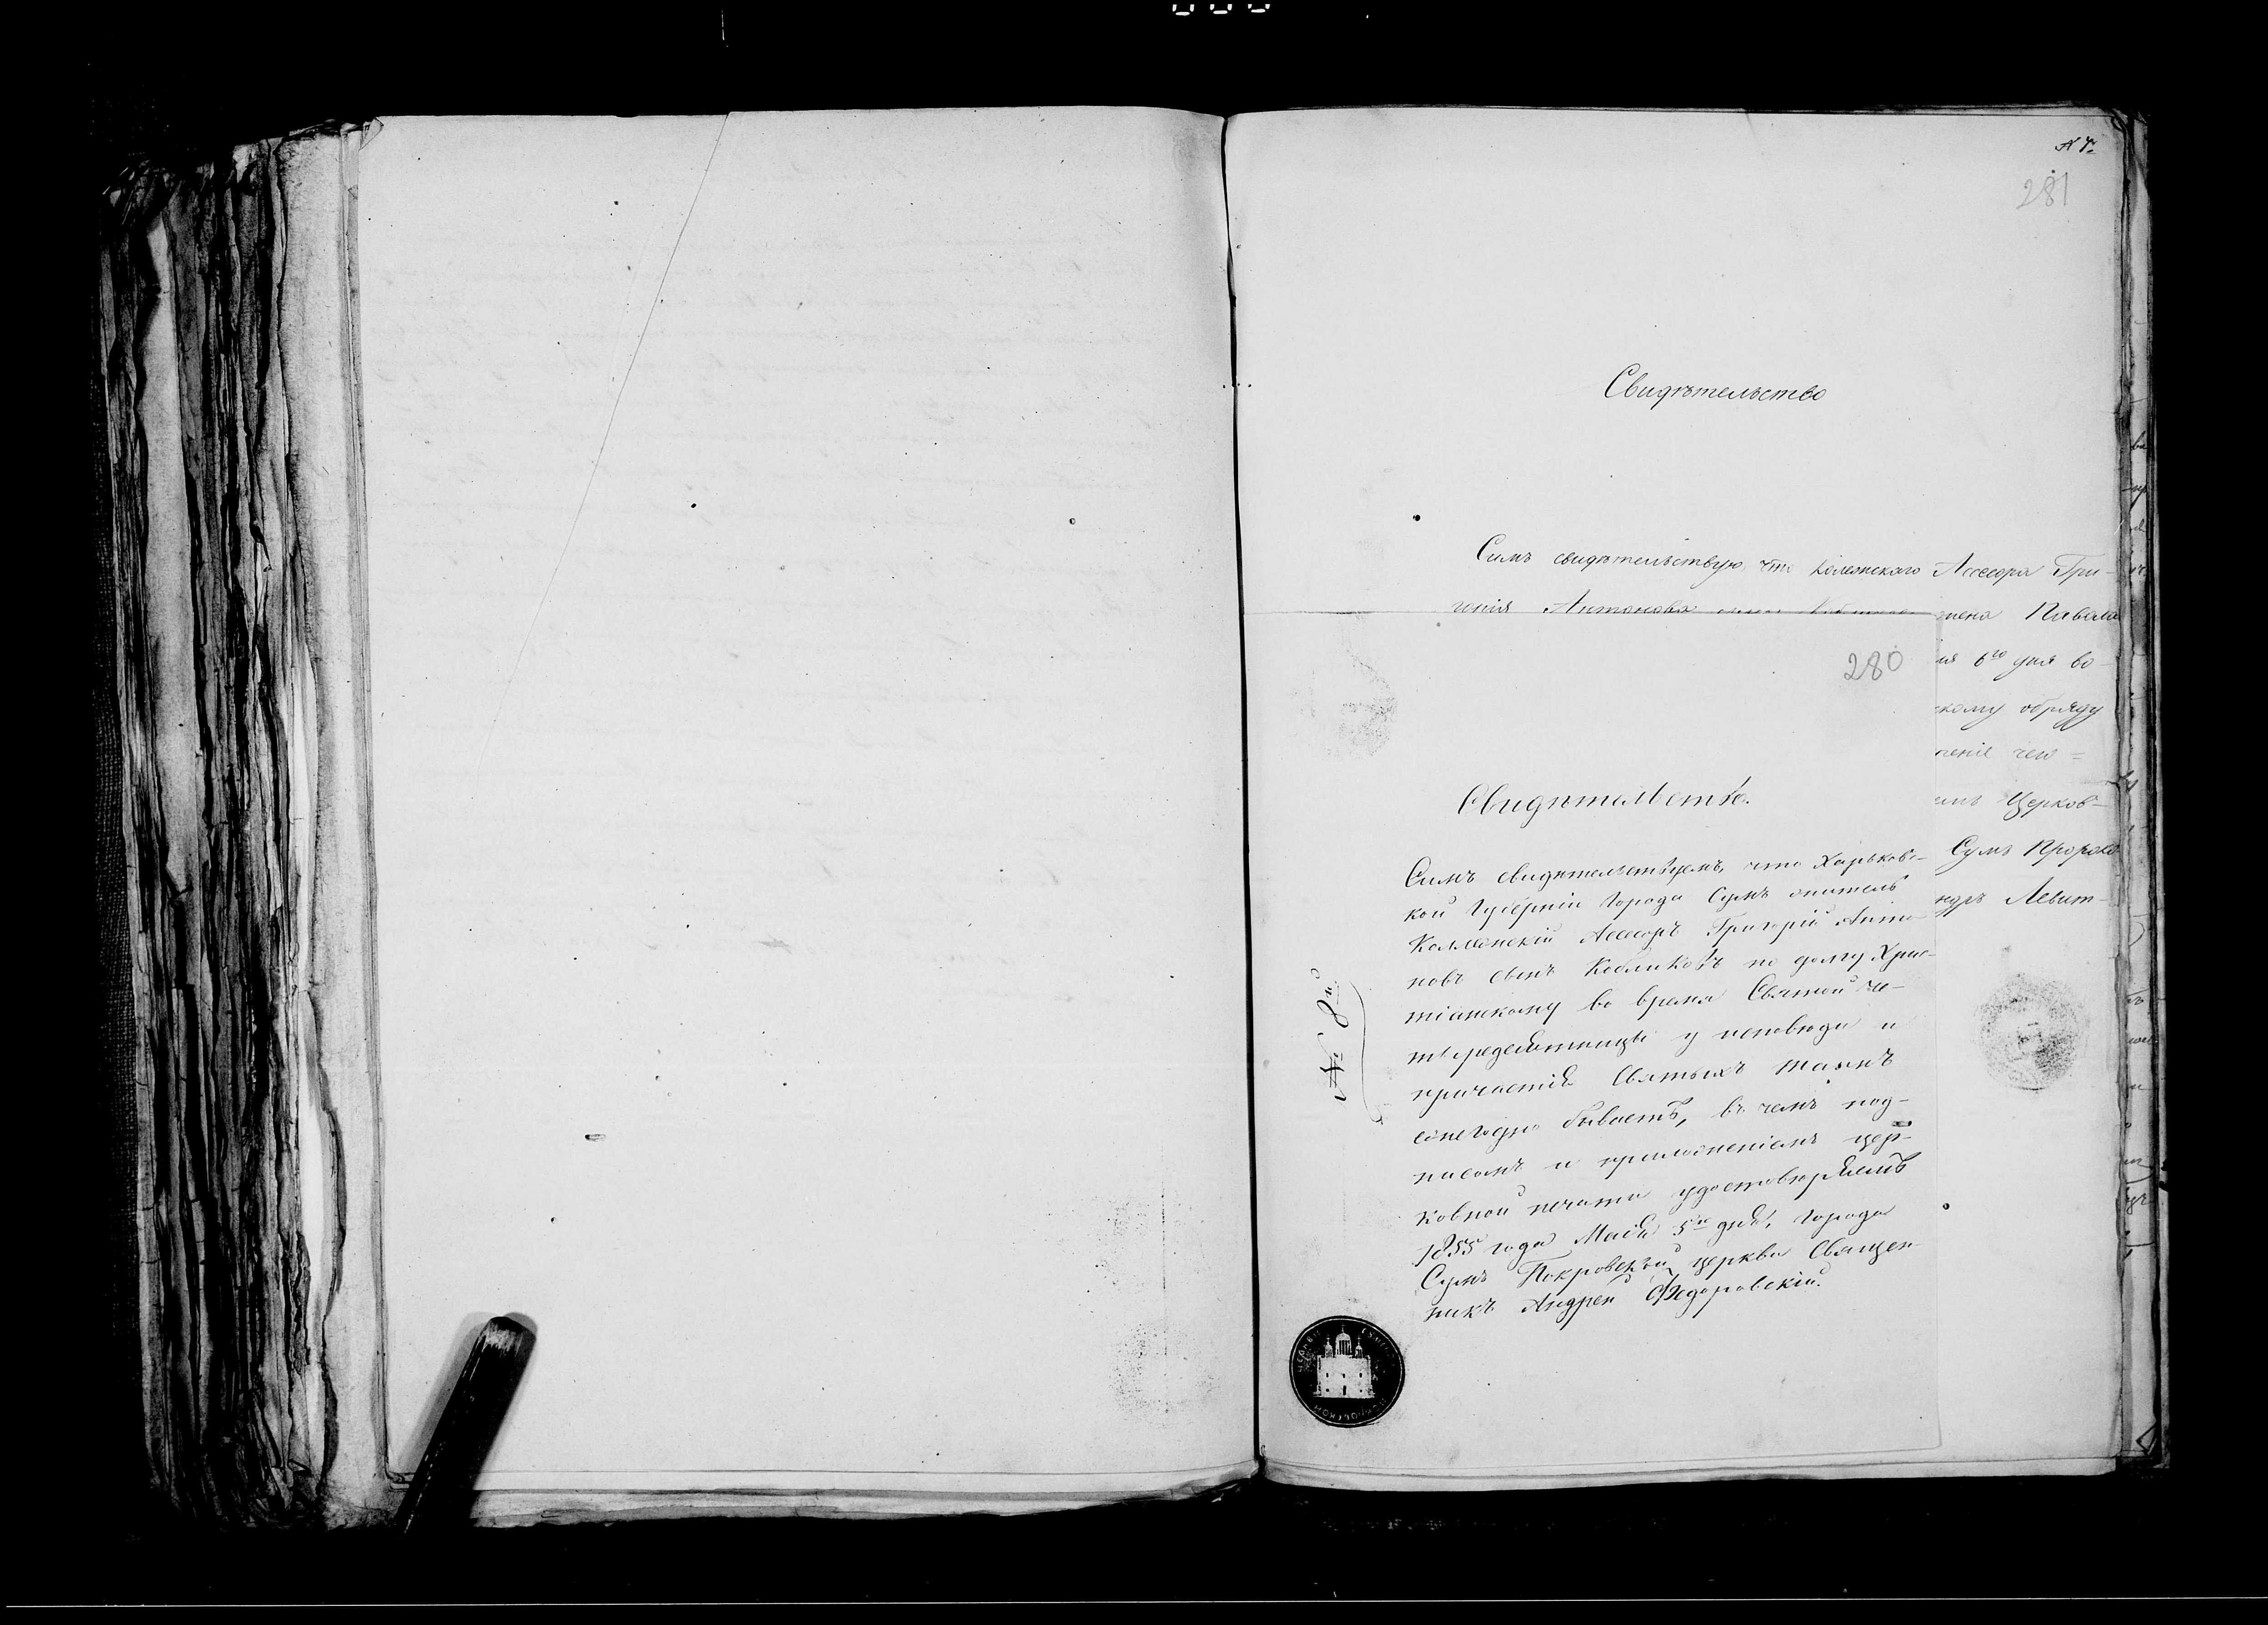 281
Свидѣтельство
Симъ свидѣтельствую, что Колежскаго Ассесора Гри-
горія Антонова
жена Павла
6го дня во
скому обряду
ченіе чего =
Церков-
Сумъ Пророко
Левит-
280
Свидѣтельство.
Симъ свидѣтельствуемъ, что Харьковс-
кой Губерніи Города Сумъ житель
Коллежскій Ассесоръ Григорій Анто-
новъ сынъ Кобликовъ по долгу Хрис-
тіанскому во время Святой Че-
тыредесятницы у исповѣди и
причастія Святыхъ Таинъ
ежегодно бываетъ, въ чемъ под-
писомъ и приложеніемъ цер-
ковной печати удостовѣряемъ
1855 года Маія 5го дня, Города
Сумъ Покровской церкви Священ-
никъ Андрей Федоровскій.
№ 8й